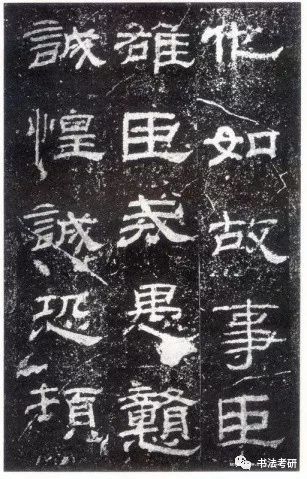 他如故事臣
雄臣戒愚戇
誠惶誠恐頓
书法考研